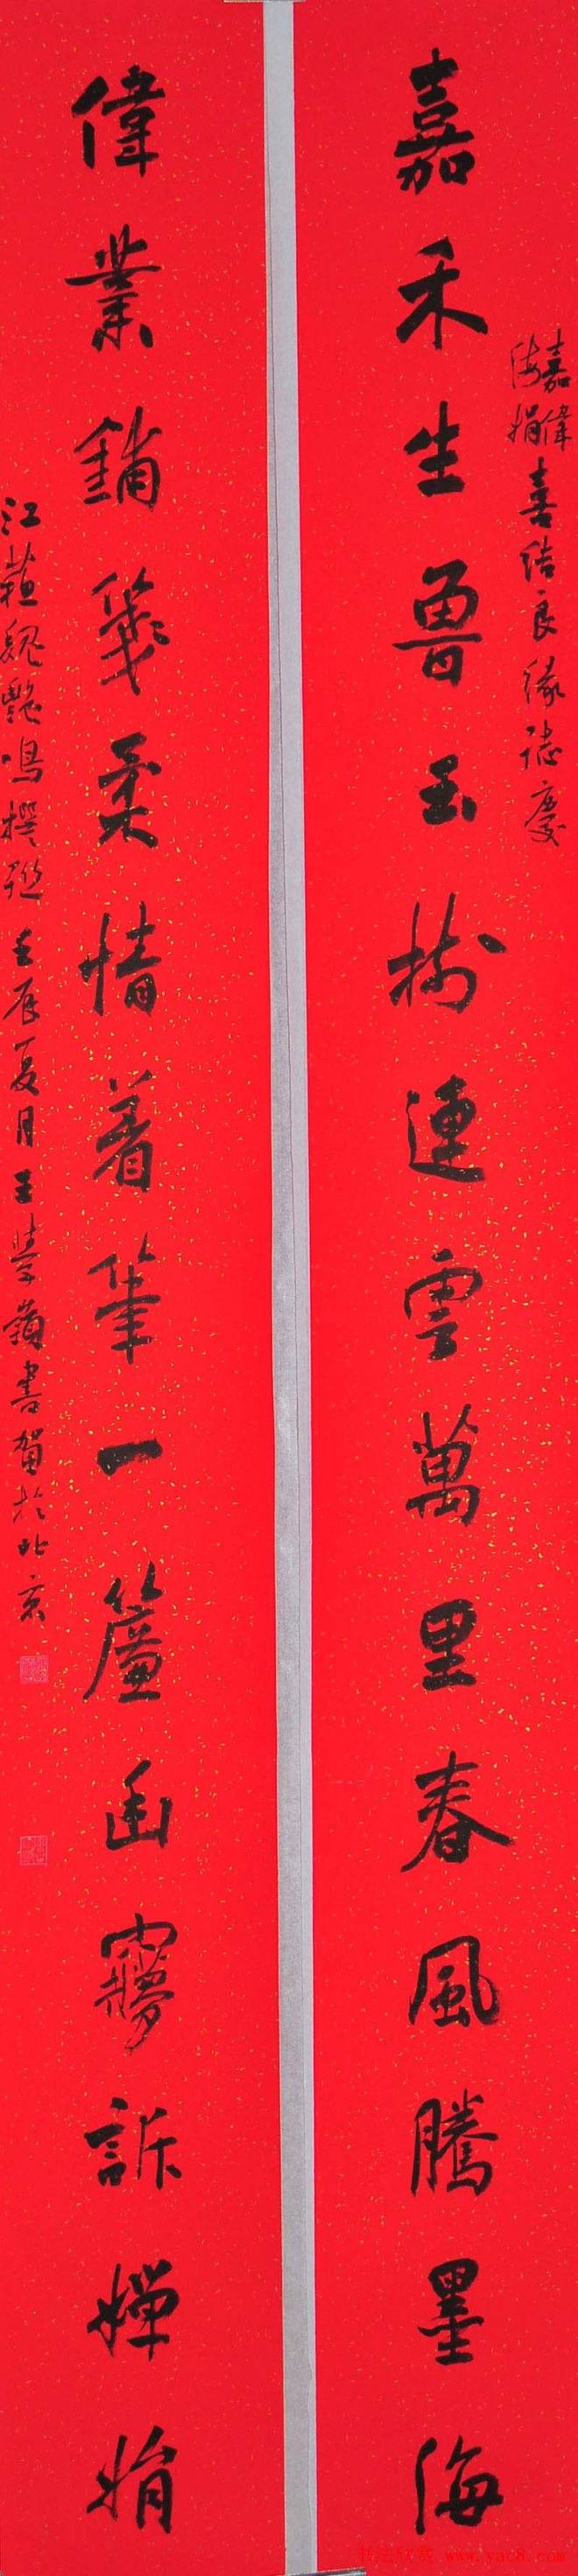 嘉偉
海娟喜结良缘誌慶
嘉禾生魯玉樹連雲萬里春風騰墨海
偉業鋪箋柔情着筆一簾幽夢訴嬋娟
江蘇魏艷鳴撰联壬辰夏月王學嶺書賀於北京
书法欣赏 www.yac8.com